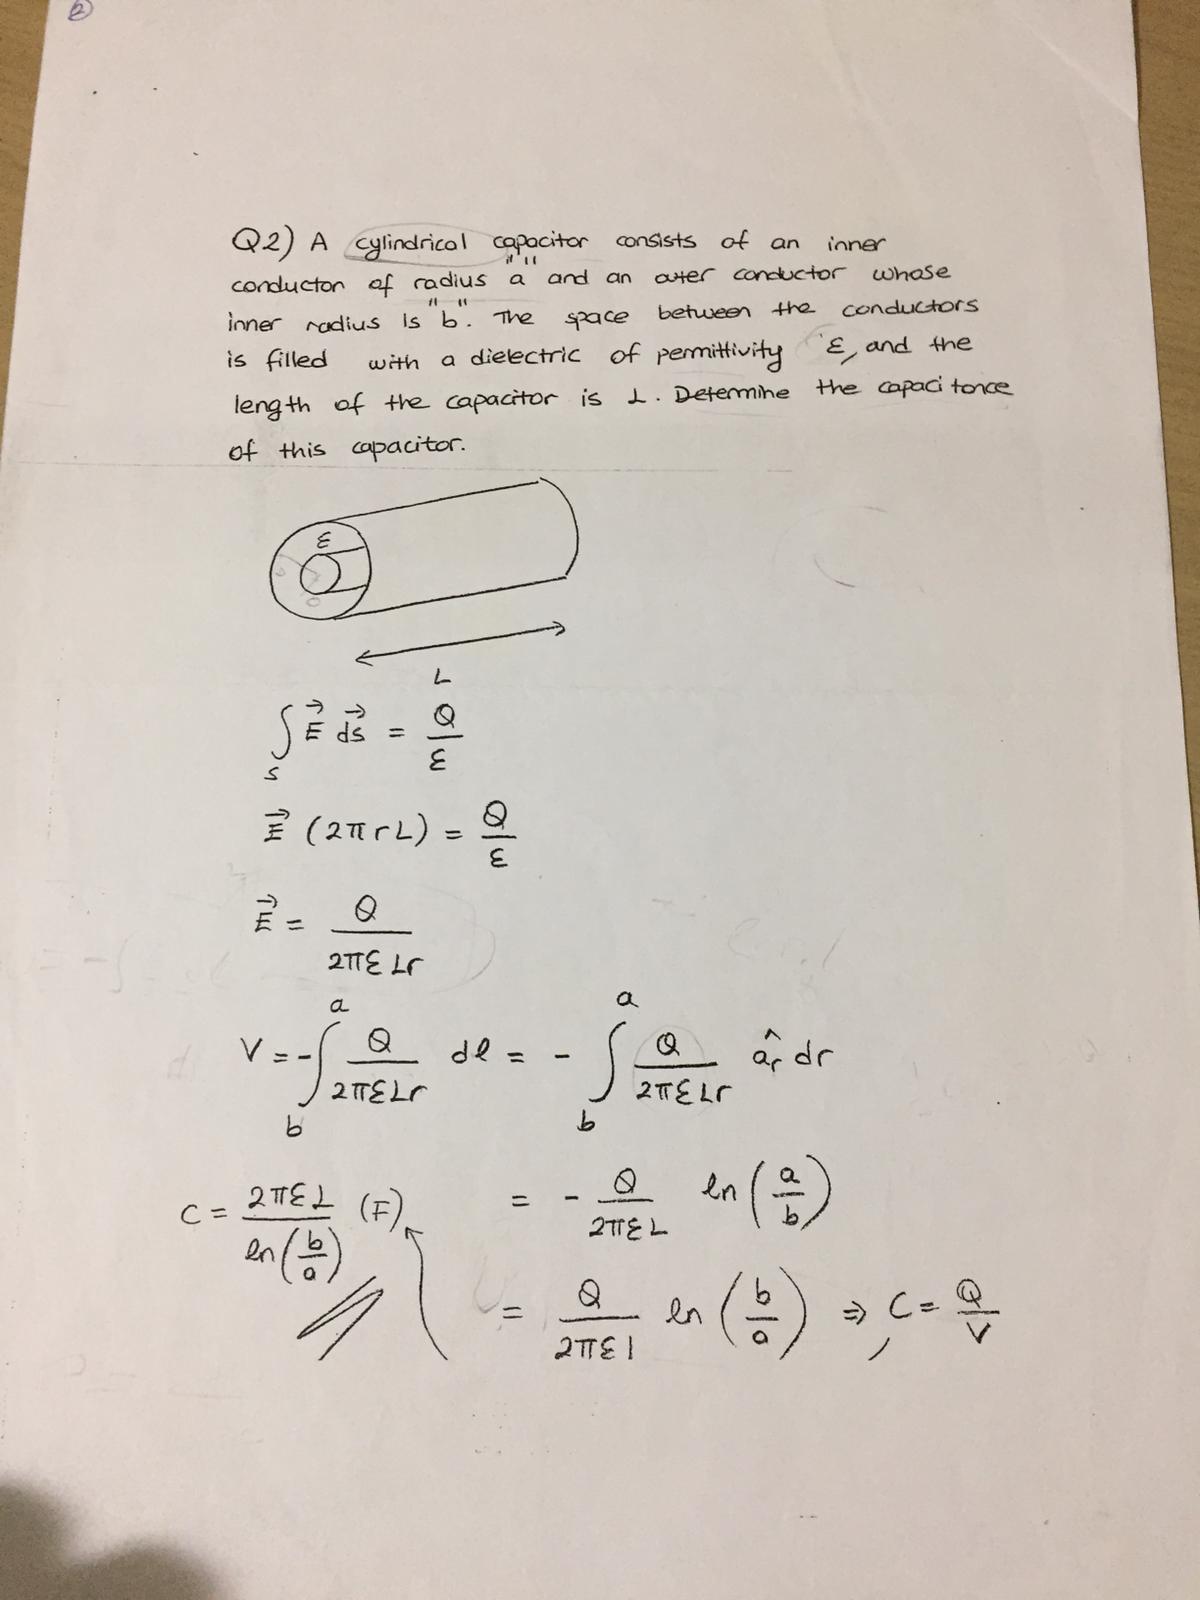 2
Q2) A cylindrical capacitor consists of an inner
conductor of radius "a" and an outer conductor whose
inner radius is "b". The space between the conductors
is filled with a dielectric of permittivity ε, and the
length of the capacitor is L. Determine the capacitance
of this capacitor.
ε
L
∫_S E⃗ ds⃗ = Q/ε
E⃗ (2πrL) = Q/ε
E⃗ = Q/(2πεLr)
V = -∫_b^a Q/(2πεLr) dl = -∫_b^a Q/(2πεLr) â_r dr
= - Q/(2πεL) ln(a/b)
= Q/(2πεl) ln(b/a) ⇒, C = Q/V
C = 2πεL/ln(b/a) (F)